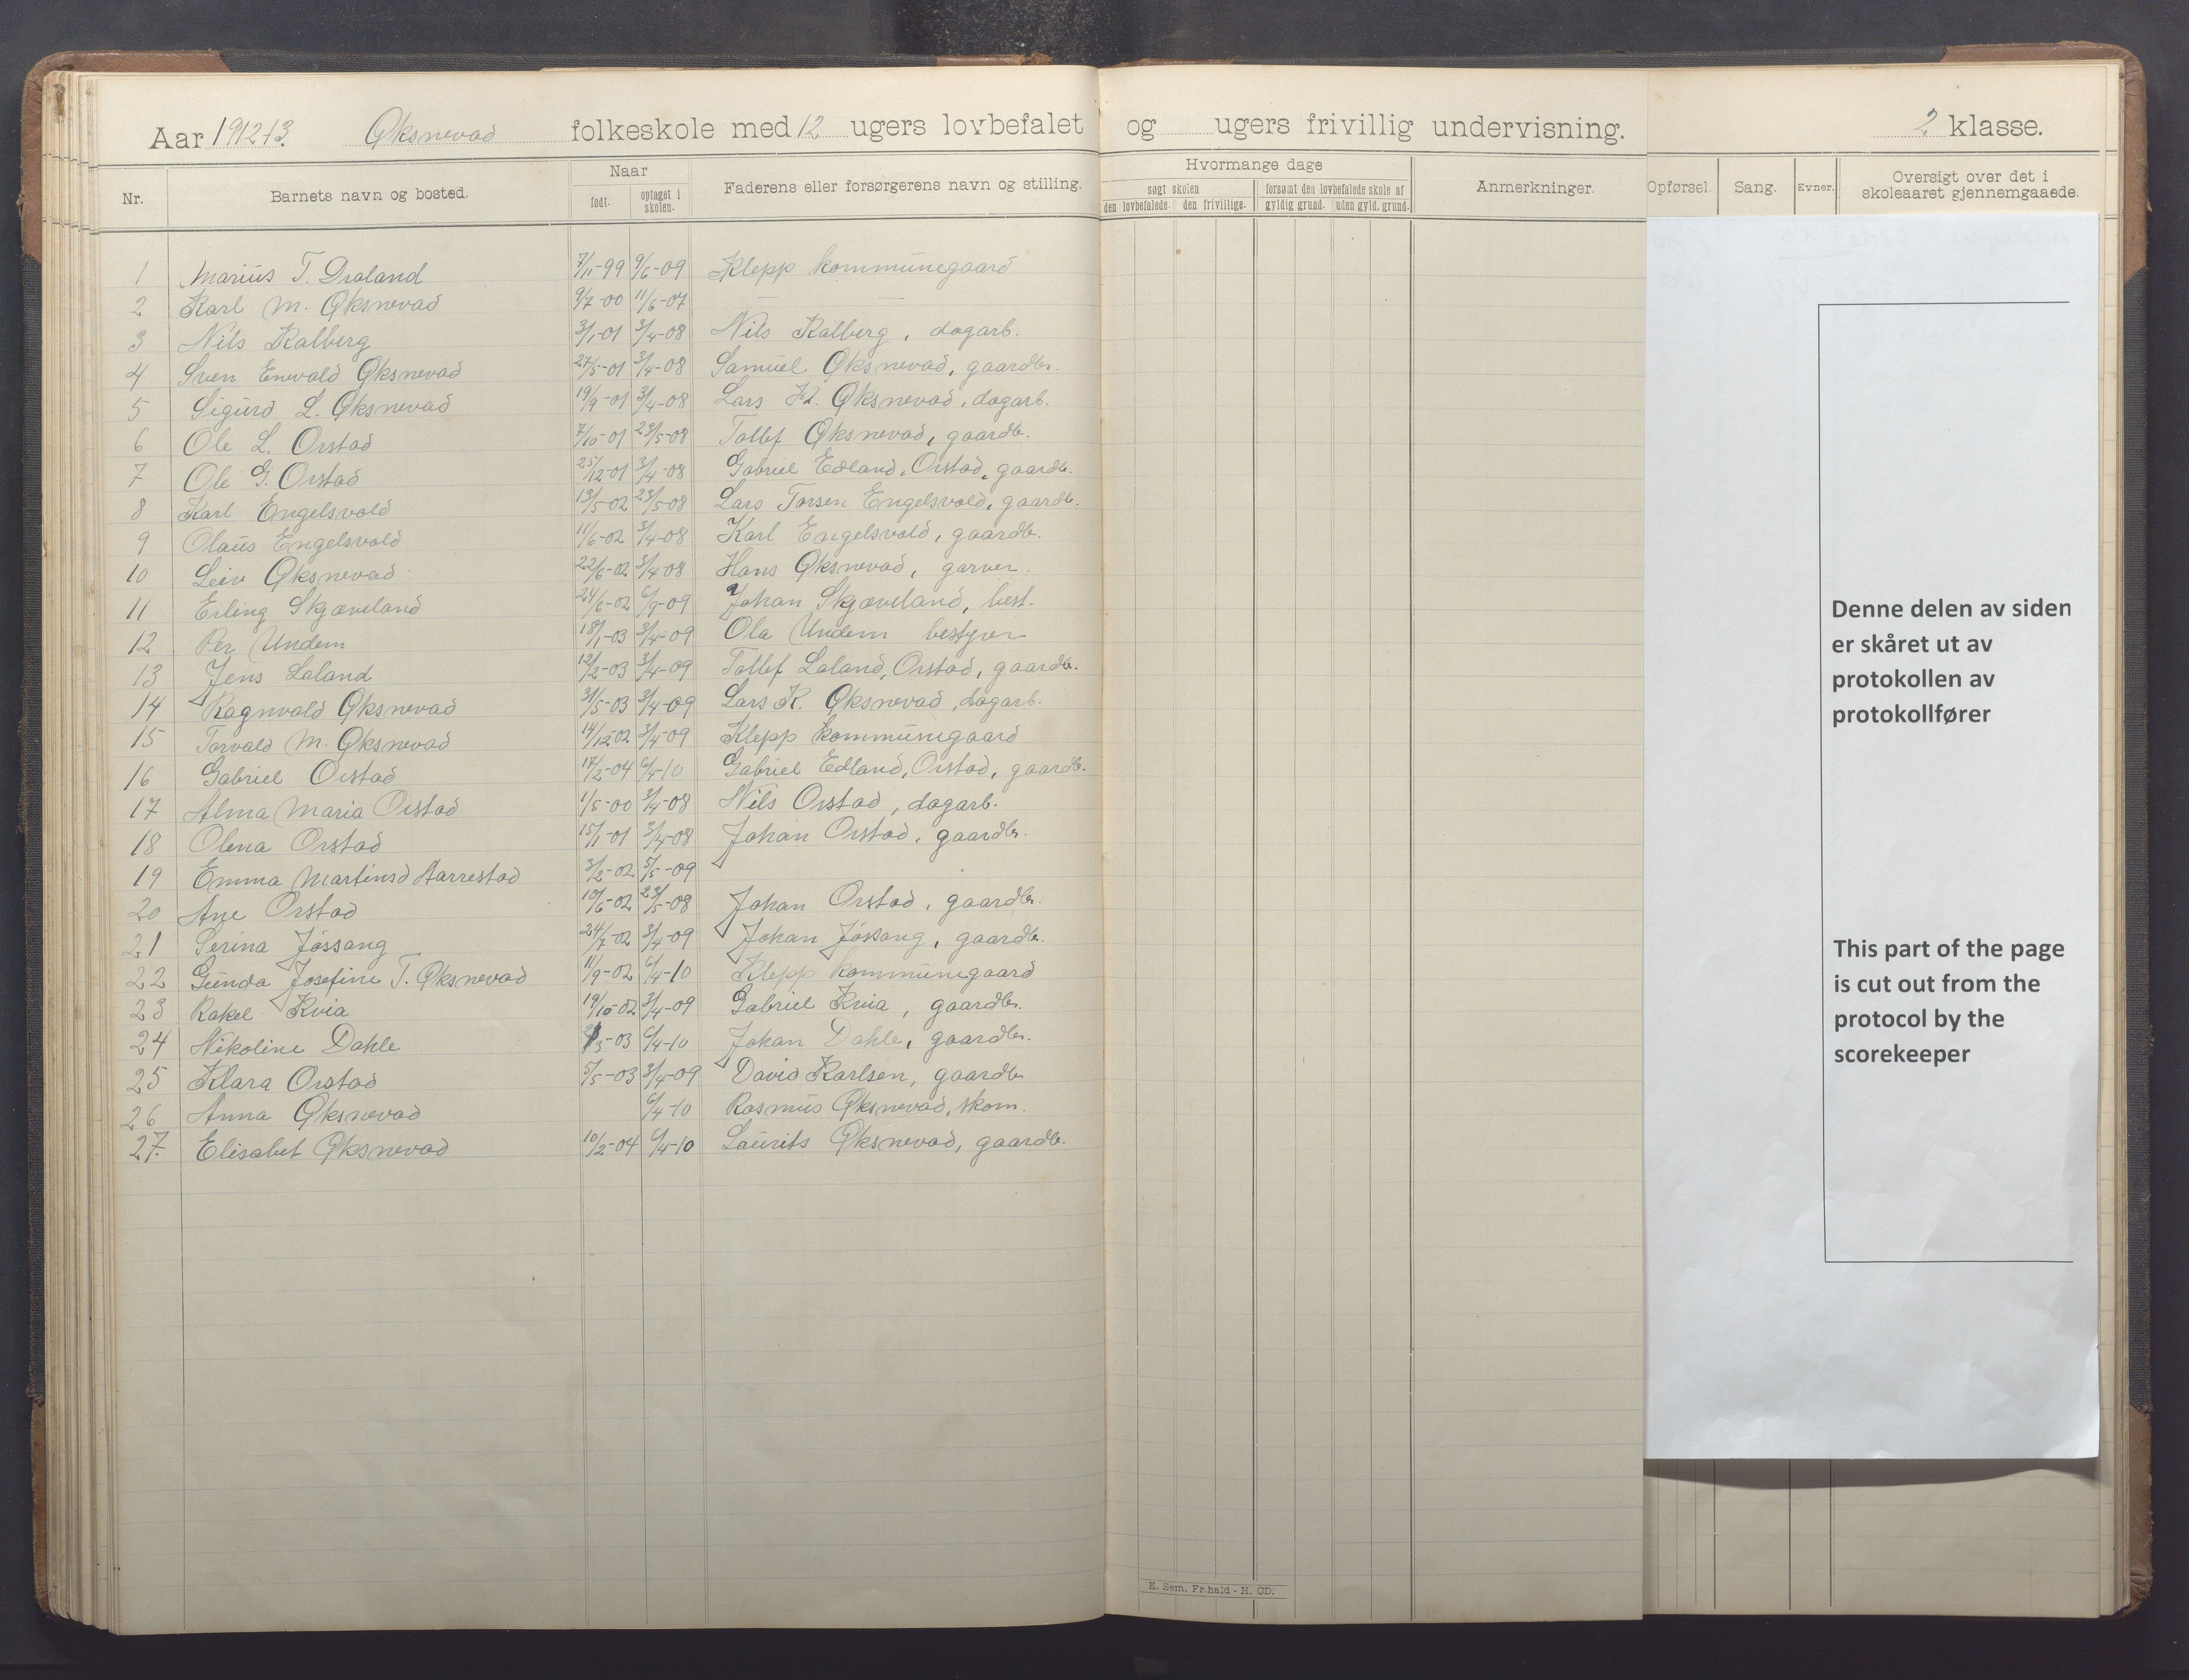 Aar 1912-13. Øksnevad folkeskole med 12 ugers lovbefalet og ugers frivillig undervisning. 2 klasse.
Nr. Barnets navn og bosted. Naar født. optaget i skolen. Faderens eller forsørgerens navn og stilling. Hvormange dage søgt skolen den lovbefalede. den frivillige. forsømt den lovbefalede skole af gyldig grund. uden gyld. grund. Anmerkninger. Opførsel. Sang. Evner. Oversigt over det i skoleaaret gjennemgaaede.
1 Marius T. Braland 7/11-99 9/6-09 Klepp kommunegaard
2 Karl M. Øksnevad 9/7-00 11/6-07 — —
3 Nils Kalberg 3/1-01 3/4-08 Nils Kalberg, dagarb.
4 Sven Enevald Øksnevad 27/5-01 3/4-08 Samuel Øksnevad, gaardbr.
5 Sigurd L. Øksnevad 19/9-01 3/4-08 Lars K. Øksnevad, dagarb.
6 Ole L. Orstad 7/10-01 23/5-08 Tollef Øksnevad, gaardb.
7 Ole G. Orstad 25/12-01 3/4-08 Gabriel Edland, Orstad, gaardb.
8 Karl Engelsvold 13/5-02 23/5-08 Lars Torsen Engelsvold, gaardb.
9 Olaus Engelsvold 11/6-02 3/4-08 Karl Engelsvold, gaardb.
10 Leiv Øksnevad 22/6-02 3/4-08 Hans Øksnevad, garver.
11 Erling Skjæveland 24/6-02 6/9-09 Johan Skjæveland, best.
12 Per Undem 18/1-03 3/4-09 Ola Undem bestyrer
13 Jens Laland 12/2-03 3/4-09 Tollef Laland, Orstad, gaardb.
14 Ragnvald Øksnevad 31/5-03 3/4-09 Lars K. Øksnevad, dagarb.
15 Torvald M. Øksnevad 14/12-02 3/4-09 Klepp kommunegaard
16 Gabriel Orstad 17/2-04 6/4-10 Gabriel Edland, Orstad, gaardb.
17 Alma Maria Orstad 1/5-00 3/4-08 Nils Orstad, dagarb.
18 Olena Orstad 15/1-01 3/4-08 Johan Orstad, gaardbr.
19 Emma Martinsd Harrestad 3/2-02 5/5-09
20 Ane Orstad 10/6-02 23/5-08 Johan Orstad, gaardbr.
21 Serina Jössang 24/7-02 3/4-09 Johan Jössang, gaardb.
22 Gunda Josefine T. Øksnevad 11/9-02 6/4-10 Klepp kommunegaard
23 Rakel Kvia 19/10-02 3/4-09 Gabriel Kvia, gaardbr.
24 Nikoline Dahle 3-03 6/4-10 Johan Dahle, gaardbr.
25 Klara Orstad 5/5-03 3/4-09 David Karlsen, gaardb
26 Anna Øksnevad 6/4-10 Rasmus Øksnevad, skom.
27. Elisabet Øksnevad 10/2-04 6/4-10 Laurits Øksnevad, gaardb.
E. Sem, Fr.hald - H. CD.
Denne delen av siden
er skåret ut av
protokollen av
protokollfører
This part of the page
is cut out from the
protocol by the
scorekeeper